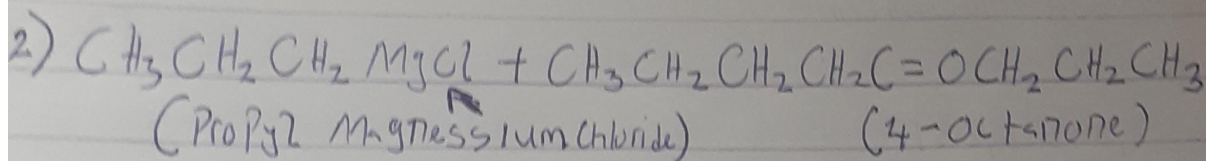 2) CH₃CH₂CH₂MgCl + CH₃CH₂CH₂CH₂C=OCH₂CH₂CH₃
(Propyl Magnessium Chloride) (4-Octanone)